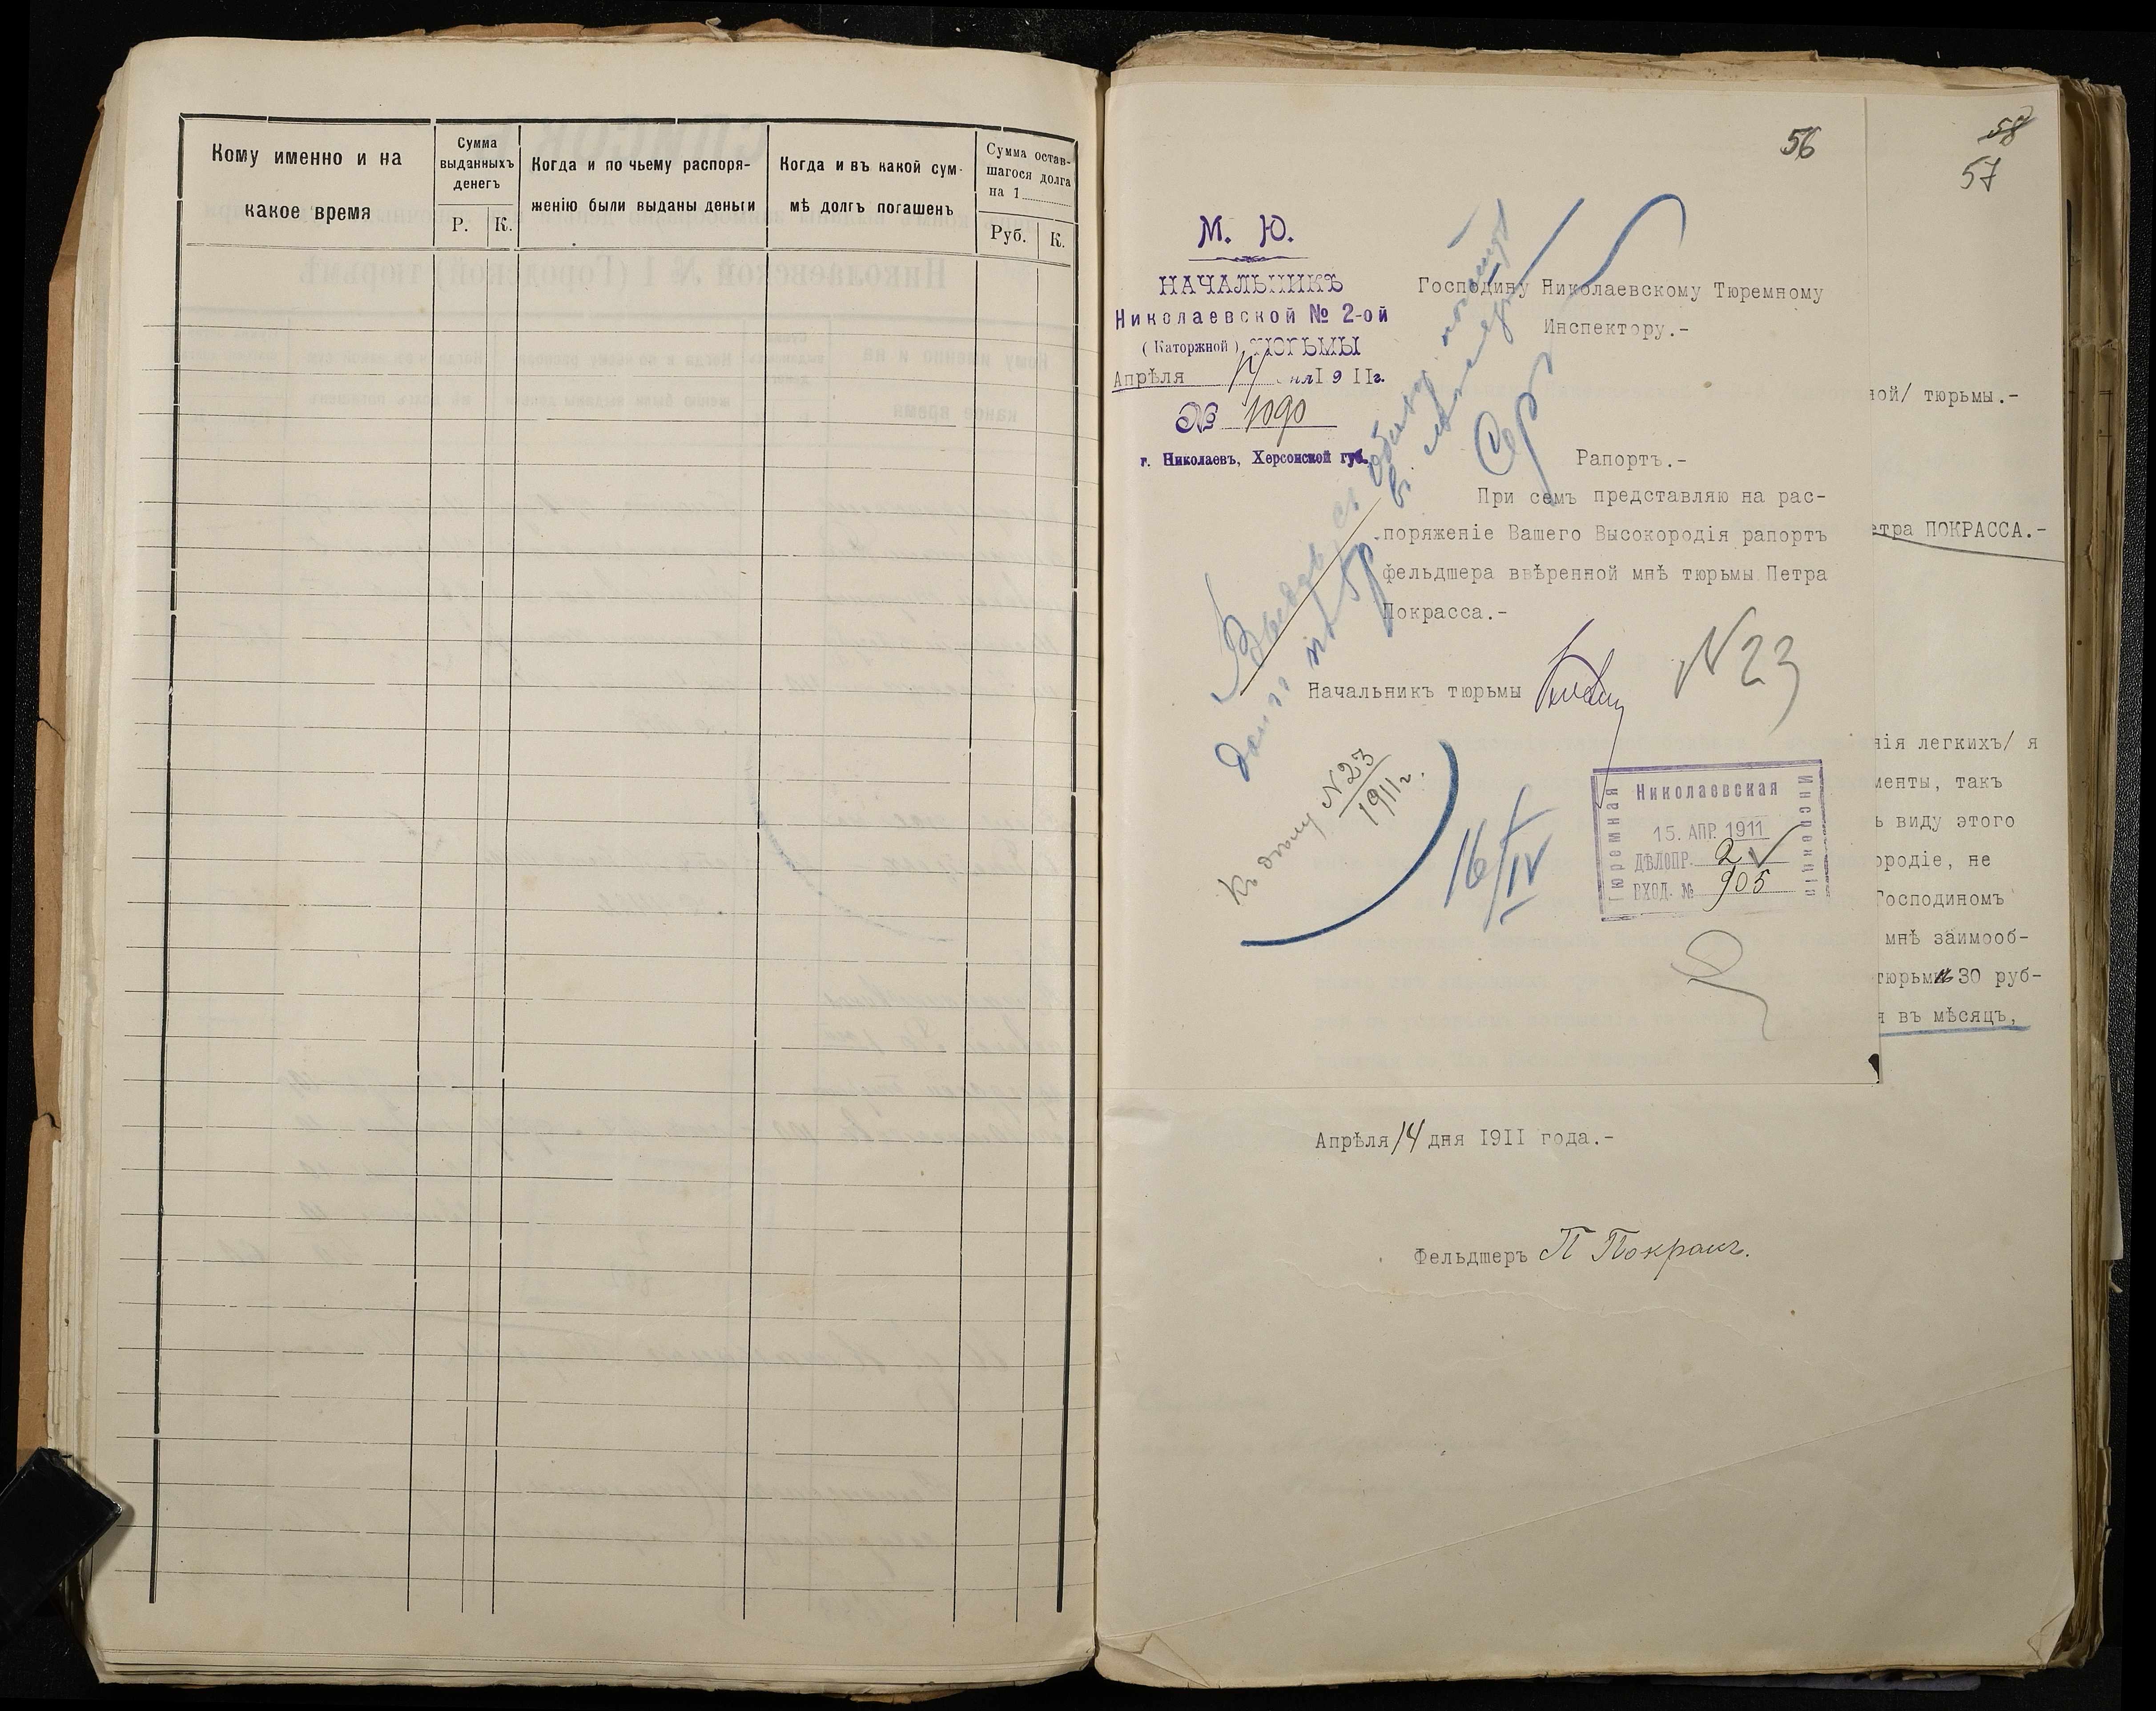 Кому именно и на
какое время
Сумма
выданныхъ
денегъ
Р. К.
Когда и по чьему распоря-
женію были выданы деньги
Когда и въ какой сум-
мѣ долгъ погашенъ
Сумма остав-
шагося долга
на 1
Руб. К.
56
58
57
М. Ю.
НАЧАЛЬНИКЪ
Николаевской № 2-ой
(Каторжной) ТЮРЬМЫ
Апрѣля 14 дня 1911г.
№ 1090
г. Николаевъ, Херсонской губ.
Господину Николаевскому Тюремному
Инспектору.-
Рапортъ.-
При семъ представляю на рас-
поряженіе Вашего Высокородія рапортъ
фельдшера ввѣренной мнѣ тюрьмы Петра
Покрасса.-
Начальникъ тюрьмы
N 23
Къ дѣлу N 23
1911г.
16/IV
Николаевская
Тюремная
Инспекція
15. АПР. 1911
ДѢЛОПР. 2
ВХОД. № 905
ной/ тюрьмы.-
етра ПОКРАССА.-
нія легкихъ/ я
менты, такъ
ъ виду этого
ородіе, не
Господиномъ
мнѣ заимооб-
тюрьмы 30 руб-
я въ мѣсяцъ,
Апрѣля 14 дня 1911 года.-
Фельдшеръ П Покрассъ.